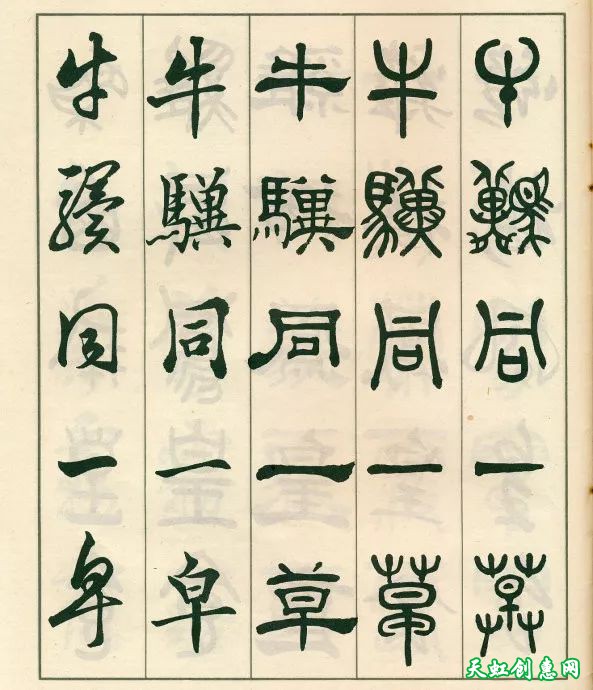 牛驥同一草
牛驥同一草
牛驥同一草
牛驥同一皁
牛驥同一皁
天虹创惠网